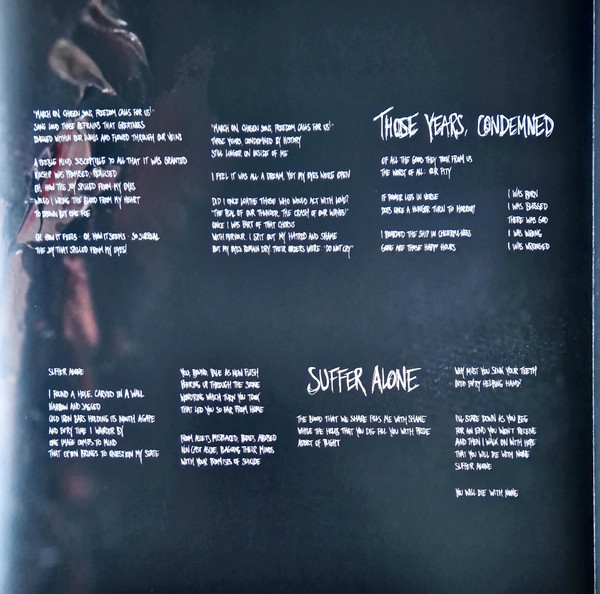 "March on, chosen sons, freedom calls for us!"
Sang loud those refrains that greatness
Barged within our lungs and flowed through our veins
A feeble mind susceptible to all that it was granted
Kinship was promised, realised
Oh how the joy spilled from my eyes
Would I wring the blood from my heart
To drown but one foe
Oh how it feels - oh, how it seems - so surreal
The joy that spilled from my eyes!
"March on, chosen sons, freedom calls for us!"
Those years condemned by history
Still linger on inside of me
I feel it was all a dream, yet my eyes were open
Did I once loathe those who would act with love?
"The peal of our thunder, the crash of our waves!"
Once I was part of that chorus
With fervour, I spit out my hatred and shame
But my eyes remain dry, their orders were "do not cry"
Those Years, Condemned
Of all the good they took from us
The worst of all - our pity
If power lies in verse
Does once a hunger turn to horror?
I boarded the ship in cheering lines
Gone are those happy hours
I was born
I was blessed
There was God
I was wrong
I was wronged
Suffer Alone
I found a hole, carved in a wall
Narrow and jagged
Old iron bars holding its mouth agape
And every time I wander by
One image comes to mind
That often brings to question my state
You, bound, pale as new flesh
Peering up through the stone
Wondering which turn you took
That led you so far from home
From assets misplaced, brides abused
Kin cast aside, plaguing their minds
With your promises of suicide
Suffer Alone
The blood that we share fills me with shame
While the holes that you dig fill you with pride
Addict of blight
Why must you sink your teeth
Into every helping hand?
I'll stare down as you beg
For an end you won't receive
And then I walk on with hope
That you will die with none
Suffer alone
You will die with none